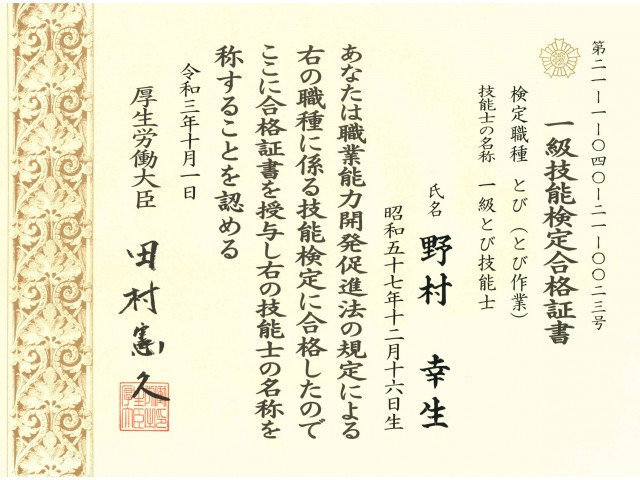 第二一ー一ー〇四〇ー二一ー〇〇二三号
一級技能検定合格証書
検定職種 とび（とび作業）
技能士の名称 一級とび技能士
氏名 野村 幸生
昭和五十七年十二月十六日生
あなたは職業能力開発促進法の規定による
右の職種に係る技能検定に合格したので
ここに合格証書を授与し右の技能士の名称を
称することを認める
令和三年十月一日
厚生労働大臣 田村憲久